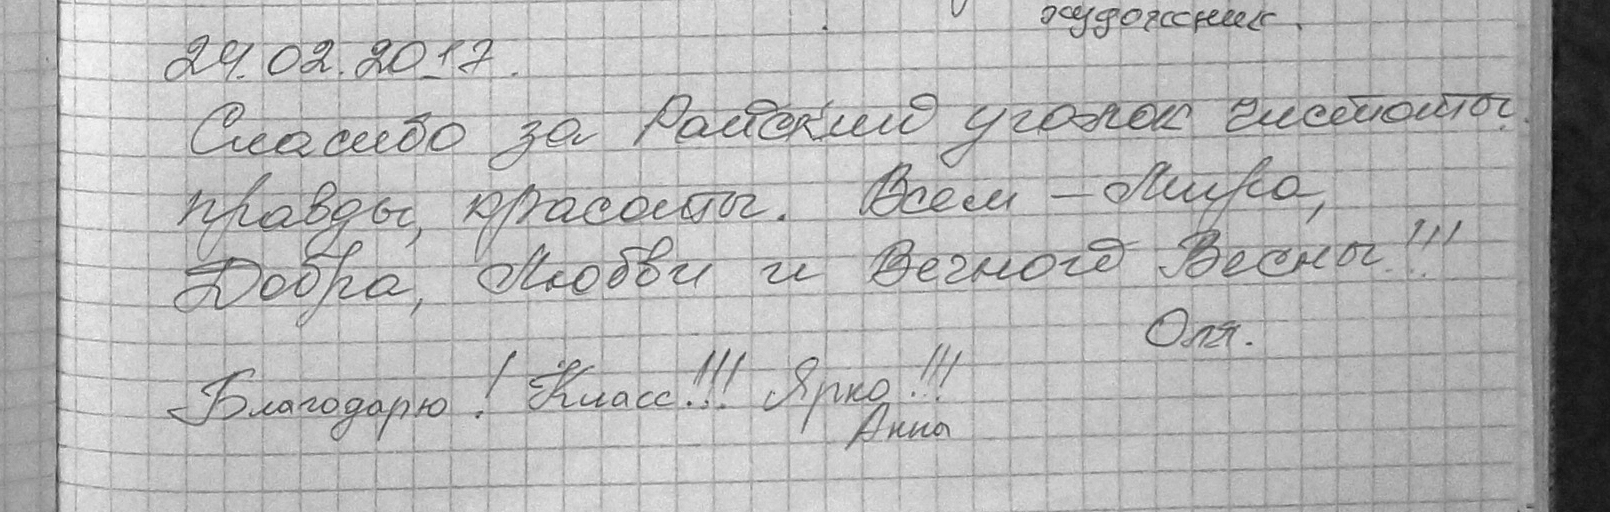 художник.
24.02.2017.
Спасибо за Райский уголок чистоты,
правды, красоты. Всем – Мира,
Добра, Любви и Вечной Весны!!!
Оля.
Благодарю! Класс!!! Ярко!!!
Анна